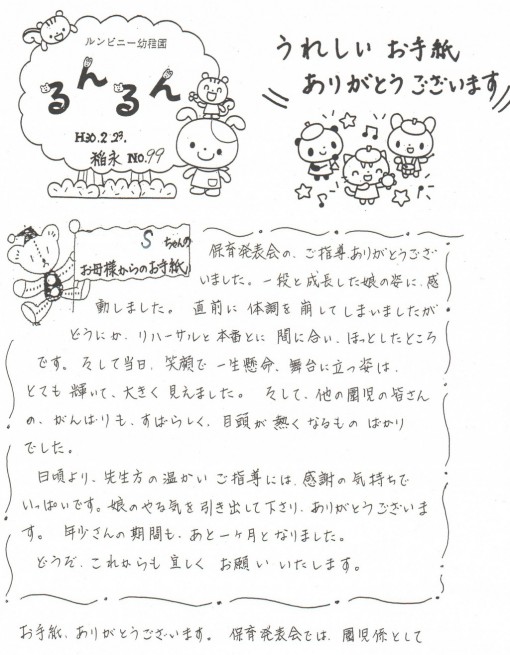 ルンビニー幼稚園
るんるん
H30.2.23.
稲永 No.99
うれしい お手紙
ありがとうございます
S ちゃんの
お母様からのお手紙
保育発表会の、ご指導ありがとうござ
いました。一段と成長した娘の姿に、感
動しました。 直前に 体調を 崩してしまいましたが
どうにか、リハーサルと本番とに 間に合い、ほっとしたところ
です。そして当日、笑顔で 一生懸命、舞台に立つ姿は、
とても 輝いて、大きく 見えました。 そして、他の園児の皆さん
の、がんばりも、すばらしく、目頭が 熱くなるもの ばかり
でした。
日頃より、先生方の温かい ご指導には、感謝の気持ちで
いっぱいです。娘のやる気を引き出して下さり、ありがとうございま
す。 年少さんの期間も、あと一ヶ月となりました。
どうぞ、これからも 宜しく お願い いたします。
お手紙、ありがとうございます。 保育発表会では、園児係として